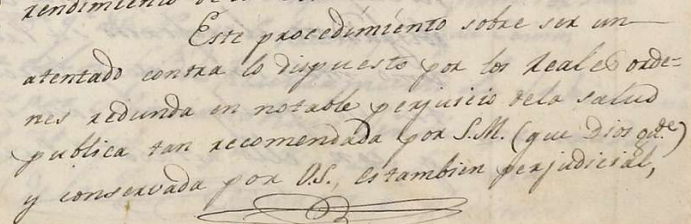 rendimiento de
Este procedimiento sobre ser un
atentado contra lo dispuesto por los Reales orde=
nes redunda en notable perjuicio dela salud
publica tan recomendada por S.M. (que Dios gde.)
y conservada por V.S., es tambien perjudicial,